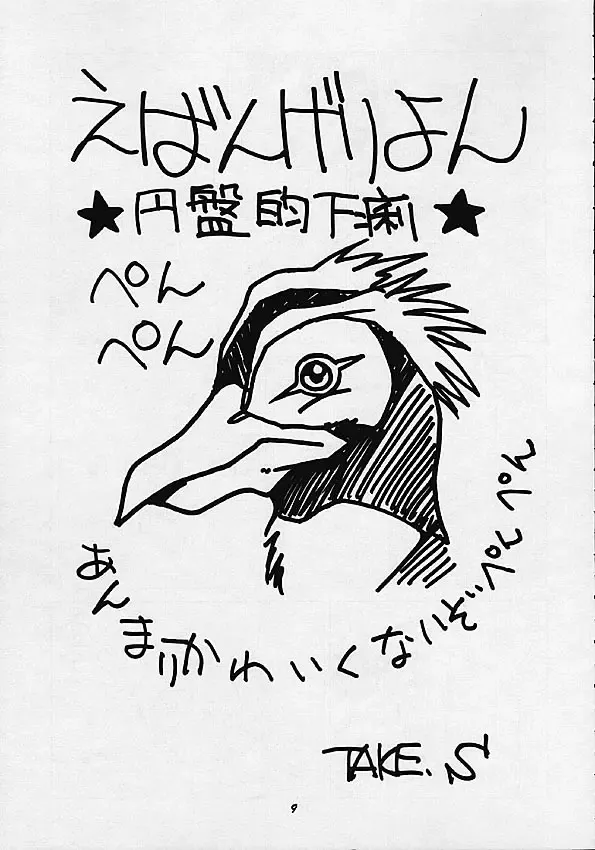 えばんげりよん
★円盤的下痢★
ぺん
ぺん
あんまりかわいくないぞ…ぺんぺん
TAKE.S
9